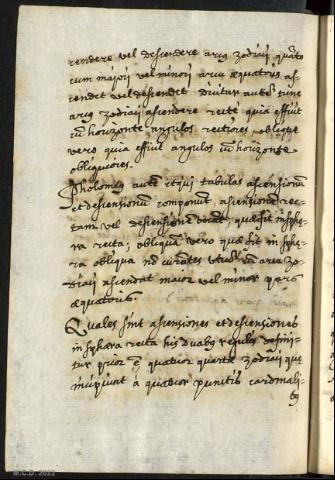 cendere vel descendere arcus zodiaci quãto
cum maiori vel minori arcu æquatoris as-
cendit vel descendit dicitur autẽ tunc
arcus zodiaci ascendere recte quia efficit
cũ horizonte angulos rectiores oblique
vero quia efficit angulos cũ horizonte
obliquiores.
Ptholomeus autẽ et qui tabulas ascensionũ
et descensionũ componut, ascensionẽ rec-
tam vel descensionẽ vocãt, quæ fit in sphæ-
ra recta; obliquã vero quæ fit in sphæ-
ra obliqua nõ curãtes utrũ cũ arcu zo-
diaci ascendat maior vel minor pars
æquatoris.
Quales sint ascensiones et descensiones
in sphæra recta his duabus regulis defini-
tur prior ẽ quatuor quartæ zodiaci que
incipiunt à quatuor punctis cardinali-
bus
M.C.D. 2022